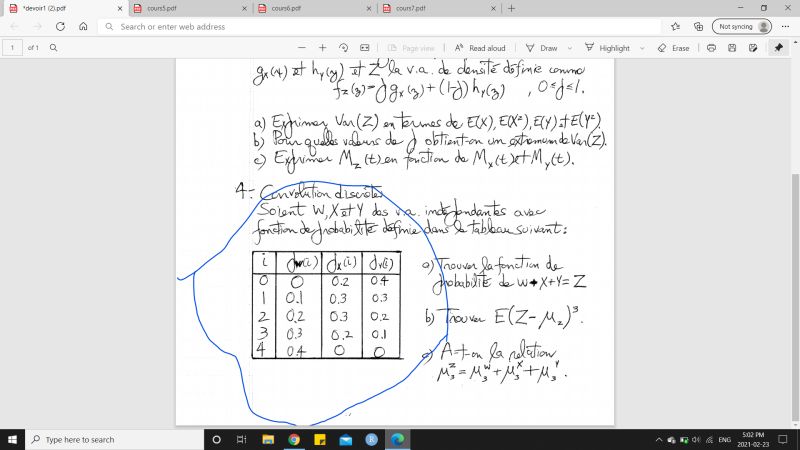 *devoir1 (2).pdf
cours5.pdf
cours6.pdf
cours7.pdf
Search or enter web address
Not syncing
1 of 1
Page view
Read aloud
Draw
Highlight
Erase
gₓ(x) et hᵧ(y) et Z la v.a. de densité définie comme
f_Z(z) = p gₓ(z) + (1-p) hᵧ(z) , 0 ≤ p ≤ 1.
a) Exprimer Var(Z) en termes de E(X), E(X²), E(Y) et E(Y²).
b) Pour quelles valeurs de p obtient-on un extremum de Var(Z).
c) Exprimer M_Z(t) en fonction de Mₓ(t) et Mᵧ(t).
4- Convolution discrète
Soient W, X et Y des v.a. indépendantes avec
fonction de probabilité définie dans le tableau suivant:
i p_W(i) pₓ(i) pᵧ(i)
0 0 0.2 0.4
1 0.1 0.3 0.3
2 0.2 0.3 0.2
3 0.3 0.2 0.1
4 0.4 0 0
a) Trouver la fonction de
probabilité de W+X+Y=Z
b) Trouver E(Z-μ_Z)³.
c) A-t-on la relation
μ₃ᶻ = μ₃ᵂ + μ₃ˣ + μ₃ʸ.
Type here to search
ENG
5:02 PM
2021-02-23